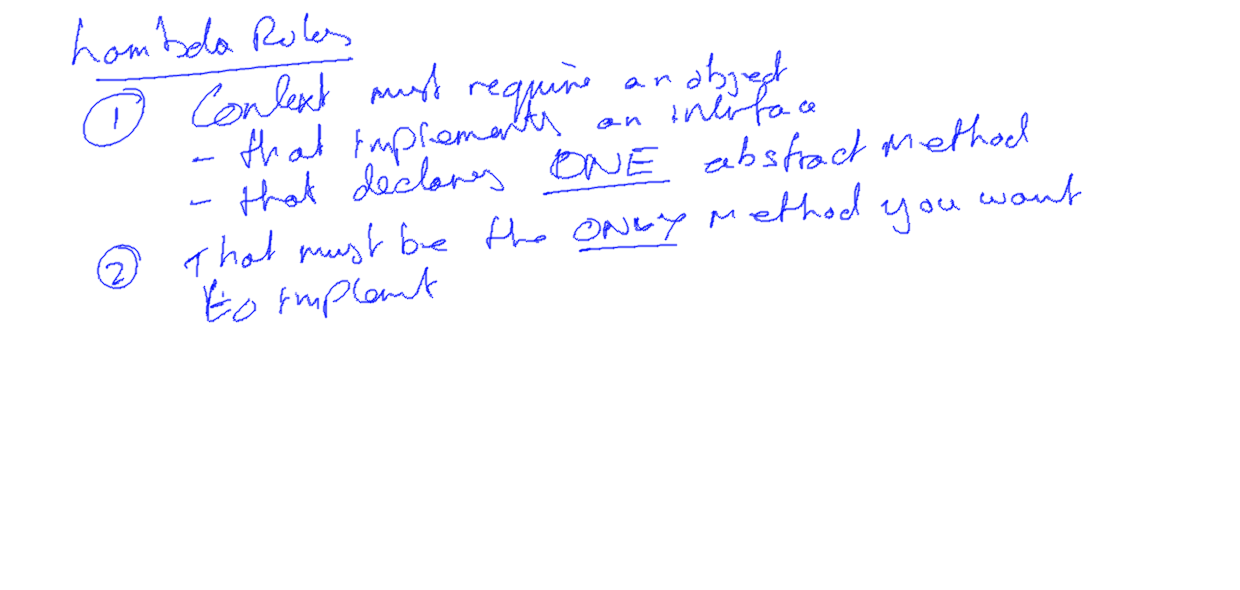 Lambda Rules
① Context must require an object
- that implements an interface
- that declares ONE abstract method
② That must be the ONLY method you want
to implemnt